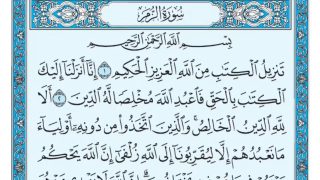 سُورَةُ الزُّمَرِ
بِسْمِ اللَّهِ الرَّحْمَٰنِ الرَّحِيمِ
تَنزِيلُ الْكِتَٰبِ مِنَ اللَّهِ الْعَزِيزِ الْحَكِيمِ ١ إِنَّا أَنزَلْنَا إِلَيْكَ
الْكِتَٰبَ بِالْحَقِّ فَاعْبُدِ اللَّهَ مُخْلِصًا لَّهُ الدِّينَ ٢ أَلَا
لِلَّهِ الدِّينُ الْخَالِصُ وَالَّذِينَ اتَّخَذُوا مِن دُونِهِ أَوْلِيَاءَ
مَا نَعْبُدُهُمْ إِلَّا لِيُقَرِّبُونَا إِلَى اللَّهِ زُلْفَىٰ إِنَّ اللَّهَ يَحْكُمُ